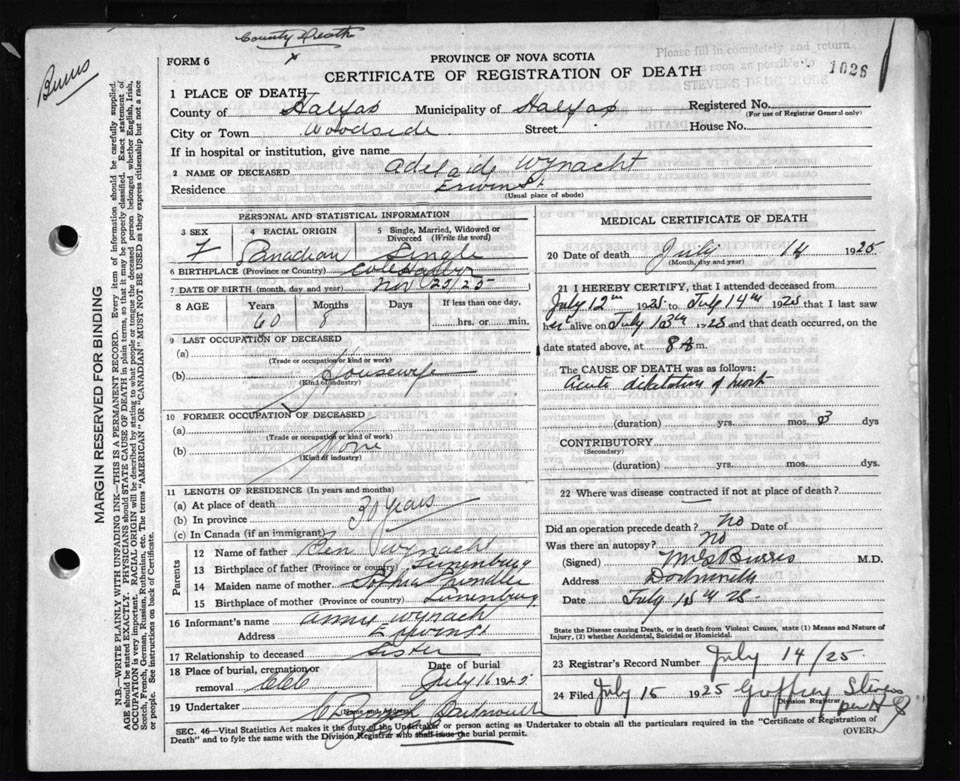 County Death
Burris
FORM 6
PROVINCE OF NOVA SCOTIA
Please fill in completely and return
as soon as possible to
STEVENS DRUG STORE
1026
CERTIFICATE OF REGISTRATION OF DEATH
1 PLACE OF DEATH
County of Halifax Municipality of Halifax Registered No.
(For use of Registrar General only)
City or Town Woodside Street House No.
If in hospital or institution, give name
2 NAME OF DECEASED Adelaide Wynacht
Residence Erwin St.
(Usual place of abode)
PERSONAL AND STATISTICAL INFORMATION
3 SEX 4 RACIAL ORIGIN 5 Single, Married, Widowed or Divorced (Write the word)
F Canadian Single
6 BIRTHPLACE (Province or Country) Cole Harbor
7 DATE OF BIRTH (month, day and year) Nov 25/25
8 AGE Years Months Days If less than one day,
60 8 hrs. or min.
9 LAST OCCUPATION OF DECEASED
(a)
(Trade or occupation or kind of work)
(b) Housewife
(Kind of industry)
10 FORMER OCCUPATION OF DECEASED
(a)
(Trade or occupation or kind of work)
(b) None
(Kind of industry)
11 LENGTH OF RESIDENCE (In years and months)
(a) At place of death
(b) In province 30 years
(c) In Canada (if an immigrant)
Parents
12 Name of father Ben Wynach
13 Birthplace of father (Province or Country) Lunenburg
14 Maiden name of mother Sophia
15 Birthplace of mother (Province or country) Lunenburg
16 Informant's name Annie Wynach
Address Erwin St
17 Relationship to deceased Sister
18 Place of burial, cremation or removal Date of burial
July 16 1925
19 Undertaker Dartmouth
MEDICAL CERTIFICATE OF DEATH
20 Date of death July 14 1925
(Month, day and year)
21 I HEREBY CERTIFY, that I attended deceased from
July 12th 1925 to July 14th 1925 that I last saw
her alive on July 13th 1925 and that death occurred, on
date stated above, at 8 A m.
The CAUSE OF DEATH was as follows:
Acute dilatation of heart
(duration) yrs. mos. 3 dys
CONTRIBUTORY
(Secondary)
(duration) yrs. mos. dys.
22 Where was disease contracted if not at place of death?
Did an operation precede death? No Date of
Was there an autopsy? No
(Signed) Burris M.D.
Address Dartmouth
Date July 15th 25.
State the Disease causing Death, or in death from Violent Causes, state (1) Means and Nature of
Injury, (2) whether Accidental, Suicidal or Homicidal.
23 Registrar's Record Number July 14/25
24 Filed July 15 1925 Geoffrey Stevens
Division Registrar
per
SEC. 46—Vital Statistics Act makes it the duty of the Undertaker or person acting as Undertaker to obtain all the particulars required in the "Certificate of Registration of
Death" and to fyle the same with the Division Registrar who shall issue the burial permit.
(OVER)
MARGIN RESERVED FOR BINDING
N.B.—WRITE PLAINLY WITH UNFADING INK—THIS IS A PERMANENT RECORD. Every item of information should be carefully supplied.
AGE should be stated EXACTLY. PHYSICIANS should STATE CAUSE OF DEATH in plain terms, so that it may be properly classified. Exact statement of
OCCUPATION is very important. RACIAL ORIGIN will be described by stating to what people or tongue the deceased person belonged whether English, Irish,
Scotch, French, German, Russian, Ruthenian, etc. The terms "AMERICAN" OR "CANADIAN" MUST NOT BE USED as they express citizenship but not a race
or people. See instructions on back of Certificate.